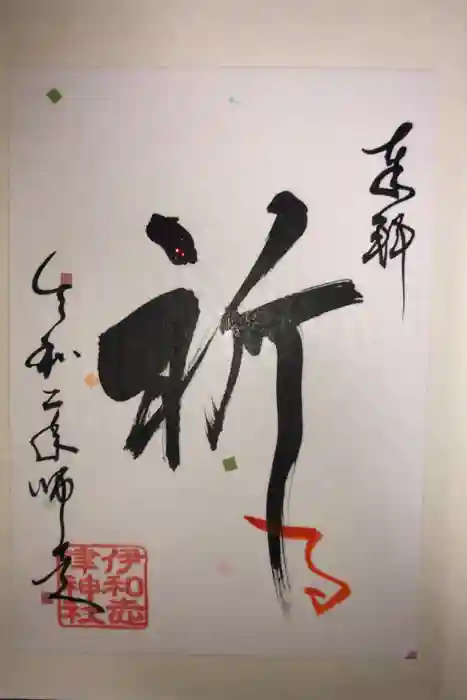 奉拝
祈
令和二年師走
伊和志
津神社